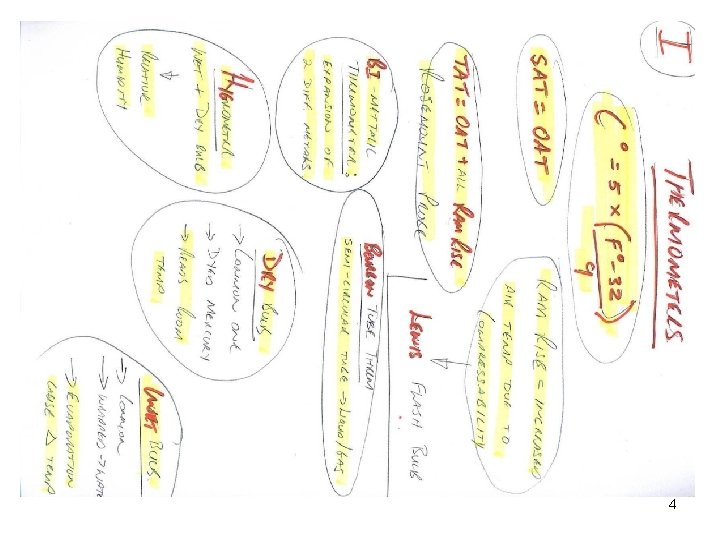 I THERMOMETERS
C° = 5 × (F° - 32)
9
SAT = OAT
RAM RISE = INCREASED
AIR TEMP DUE TO
COMPRESSABILITY
TAT = OAT + ALL RAM RISE
ROSEMOUNT PROBE
LEWIS FLASH BULB
BI-METTALIC
THERMOMETER:
EXPANSION OF
2 DIFF METALS
BOURDON TUBE THERM
SEMI-CIRCULAR TUBE → LIQUID/GAS
HYGROMETER
WET + DRY BULB
↓
RELATIVE
HUMIDITY
DRY BULB
→ COMMON ONE
→ DYED MERCURY
→ READS ROOM
TEMP
WET BULB
⇒ COMMON
→ WRAPPED → WATER
→ EVAPORATION
CAUSE Δ TEMP
4